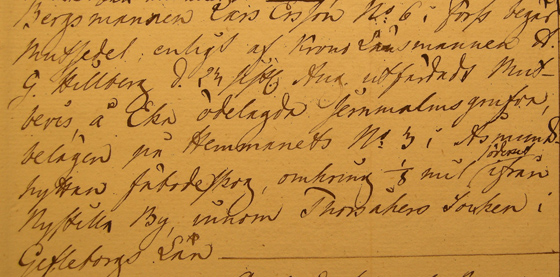 Bergsmannen Lars Ersson No 6 i Forss begär
Mutsedel enligt af Krono Länsmannen A
G Hillberg d. 24 sistl. Aug. utfärdadt Mut-
bevis, å Eka ödelagda Jernmalmsgrufva,
belägen på Hemmanets No 3 i Åsmunds
hyttan fäbodeskog, omkring 1/8 mil söderut ifrån
Nyhyttan By, innom Thorsåkers Socken i
Gefleborgs Län